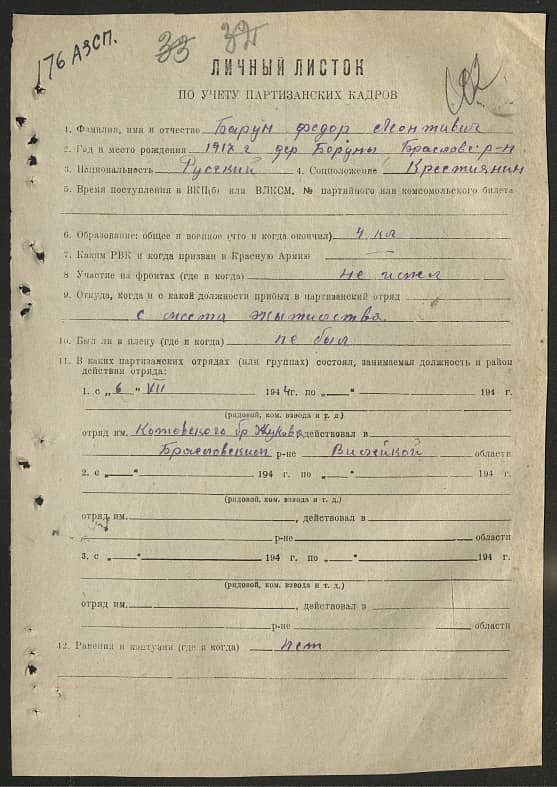 176 АЗСП.
33 32
ЛИЧНЫЙ ЛИСТОК
ПО УЧЕТУ ПАРТИЗАНСКИХ КАДРОВ
1. Фамилия, имя и отчество Барун Федор Леонтивич
2. Год и место рождения дер Боруны Браславс р-н
3. Национальность Русский 4. Соцположение Крестиянин
5. Время поступления в ВКП(б) или ВЛКСМ, № партийного или комсомольского билета
6. Образование: общее и военное (что и когда окончил) 4 кл
7. Каким РВК и когда призван в Красную Армию
8 Участие на фронтах (где и когда) не имел
9. Откуда, когда и с какой должности прибыл в партизанский отряд
с места жытиоства.
10. Был ли в плену (где и когда) не был
11. В каких партизанских отрядах (или группах) состоял, занимаемая должность и район
действия отряда:
1. с „ 6 " VII 194 4 г. по „ — " 194 г.
(рядовой, ком. взвода и т. д.)
отряд им. Котовского бр Жукова действовал в
Браславским р-не Вилейкой области
2. с „ — " 194 г. по „ — " 194 г.
(рядовой, ком. взвода и т. д.)
отряд им. , действовал в
р-не области
3, с „ — " 194 г. по „ — " 194 г.
(рядовой, ком. взвода и т. д.)
отряд им. , действовал в
р-не области
12. Ранения и контузии (где и когда) нет